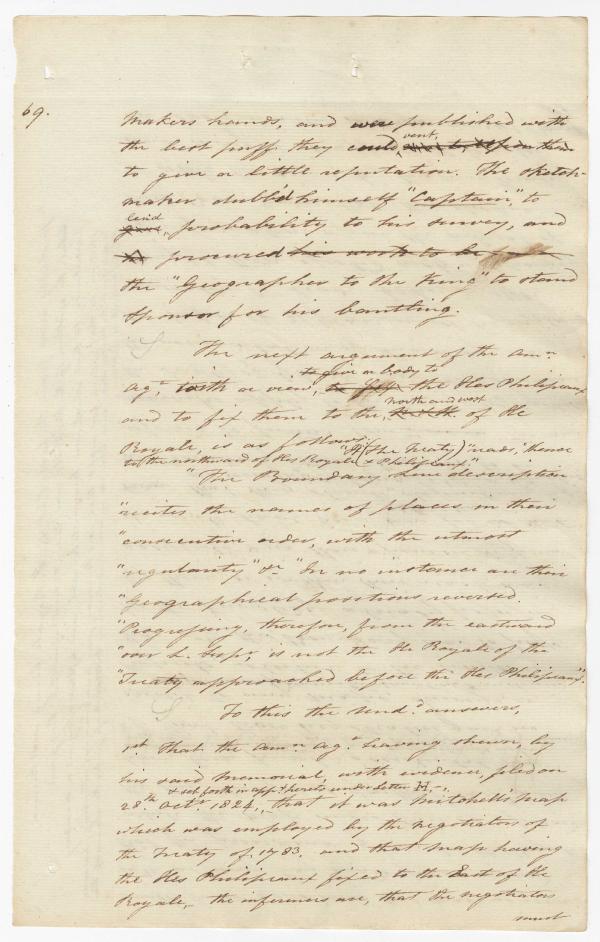 69.
makers hands, and were published with
the best puff they could vent,
to give a little reputation. The sketch-
maker dubb'd himself "Captain", to
lend
give probability to his survey, and
procured his work to be
the "Geographer to the King" to stand
Sponsor for his bantling.
The next argument of the amn
to give a body to
agt, with a view, the Iles Philipeaux
north and west
and to fix them to the, of Ile
Royale, is as follows:
"It (The Treaty) "reads," thence
to the northward of Iles Royale & Philipeaux."
"The Boundary Line description
"recites the names of places in their
"consecutive order, with the utmost
"regularity" &c "In no instance are their
"Geographical positions reversed.
"Progressing, therefore, from the eastward
"over L. Supr, is not the Ile Royale of the
"Treaty approached before the Iles Philipeaux".
To this the undd answers,
1st That the amn agt having shewn, by
his said memorial, with evidence, filed on
& set forth in appx hereto under letter H.,
28th Octr 1824, that it was Mitchell's map
which was employed by the negotiators of
the Treaty of 1783, and that map having
the Iles Philipeaux fixed to the East of Ile
Royale, the inferences are, that the negotiators
must